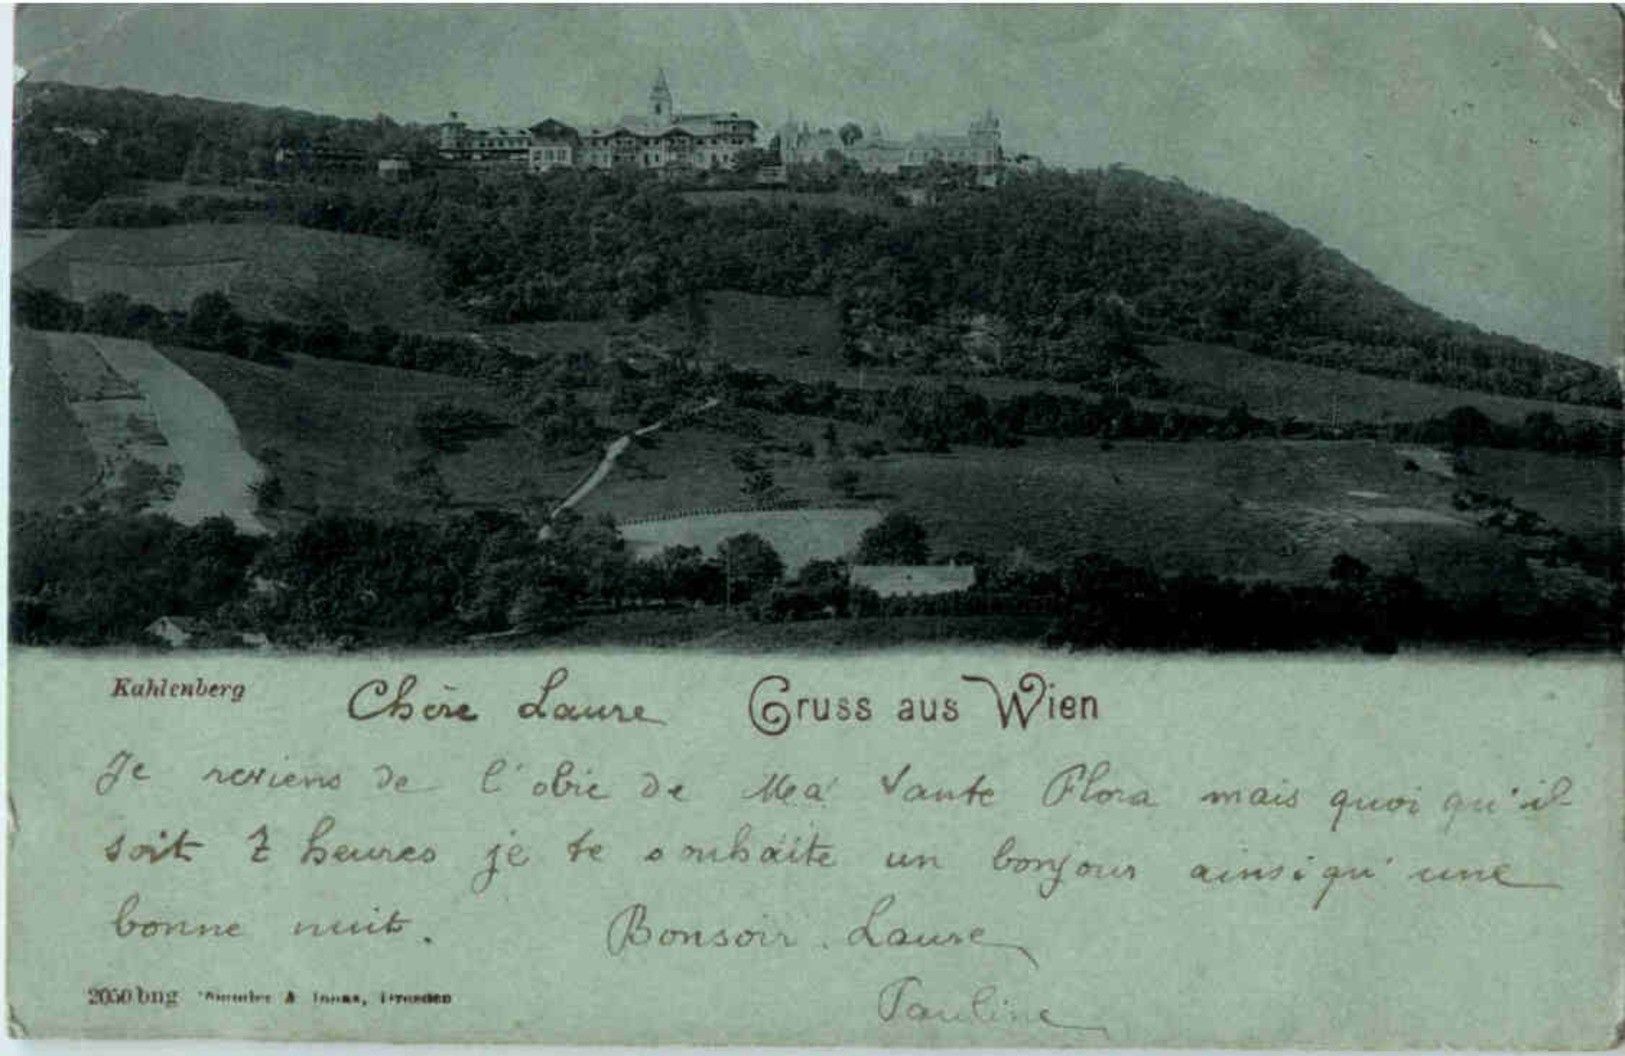 Kahlenberg
Chère Laure
Gruss aus Wien
Je reviens de l'obie de Ma Tante Flora mais quoi qu'il
soit 7 heures je te souhaite un bonjour ainsi qu'une
bonne nuit. Bonsoir. Laure
Pauline
2050 bng & Dresden